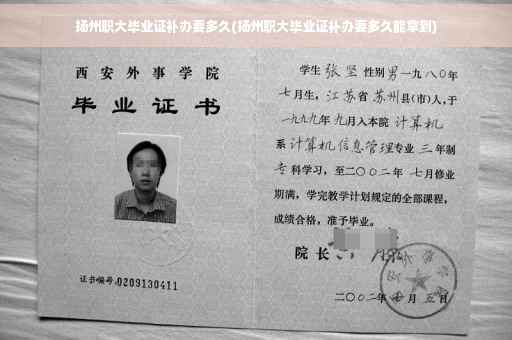 扬州职大毕业证补办要多久(扬州职大毕业证补办要多久能拿到)
西安外事学院
毕业证书
证书编号:0209130411
学生 张坚 性别 男 一九八〇年
七月生, 江苏省 苏州县(市)人,于
一九九九年 九月入本院 计算机
系 计算机信息管理专业 三 年制
专 科学习,至二〇〇二年 七月修业
期满,学完教学计划规定的全部课程,
成绩合格,准予毕业。
院长
二〇〇二年 七月 五日